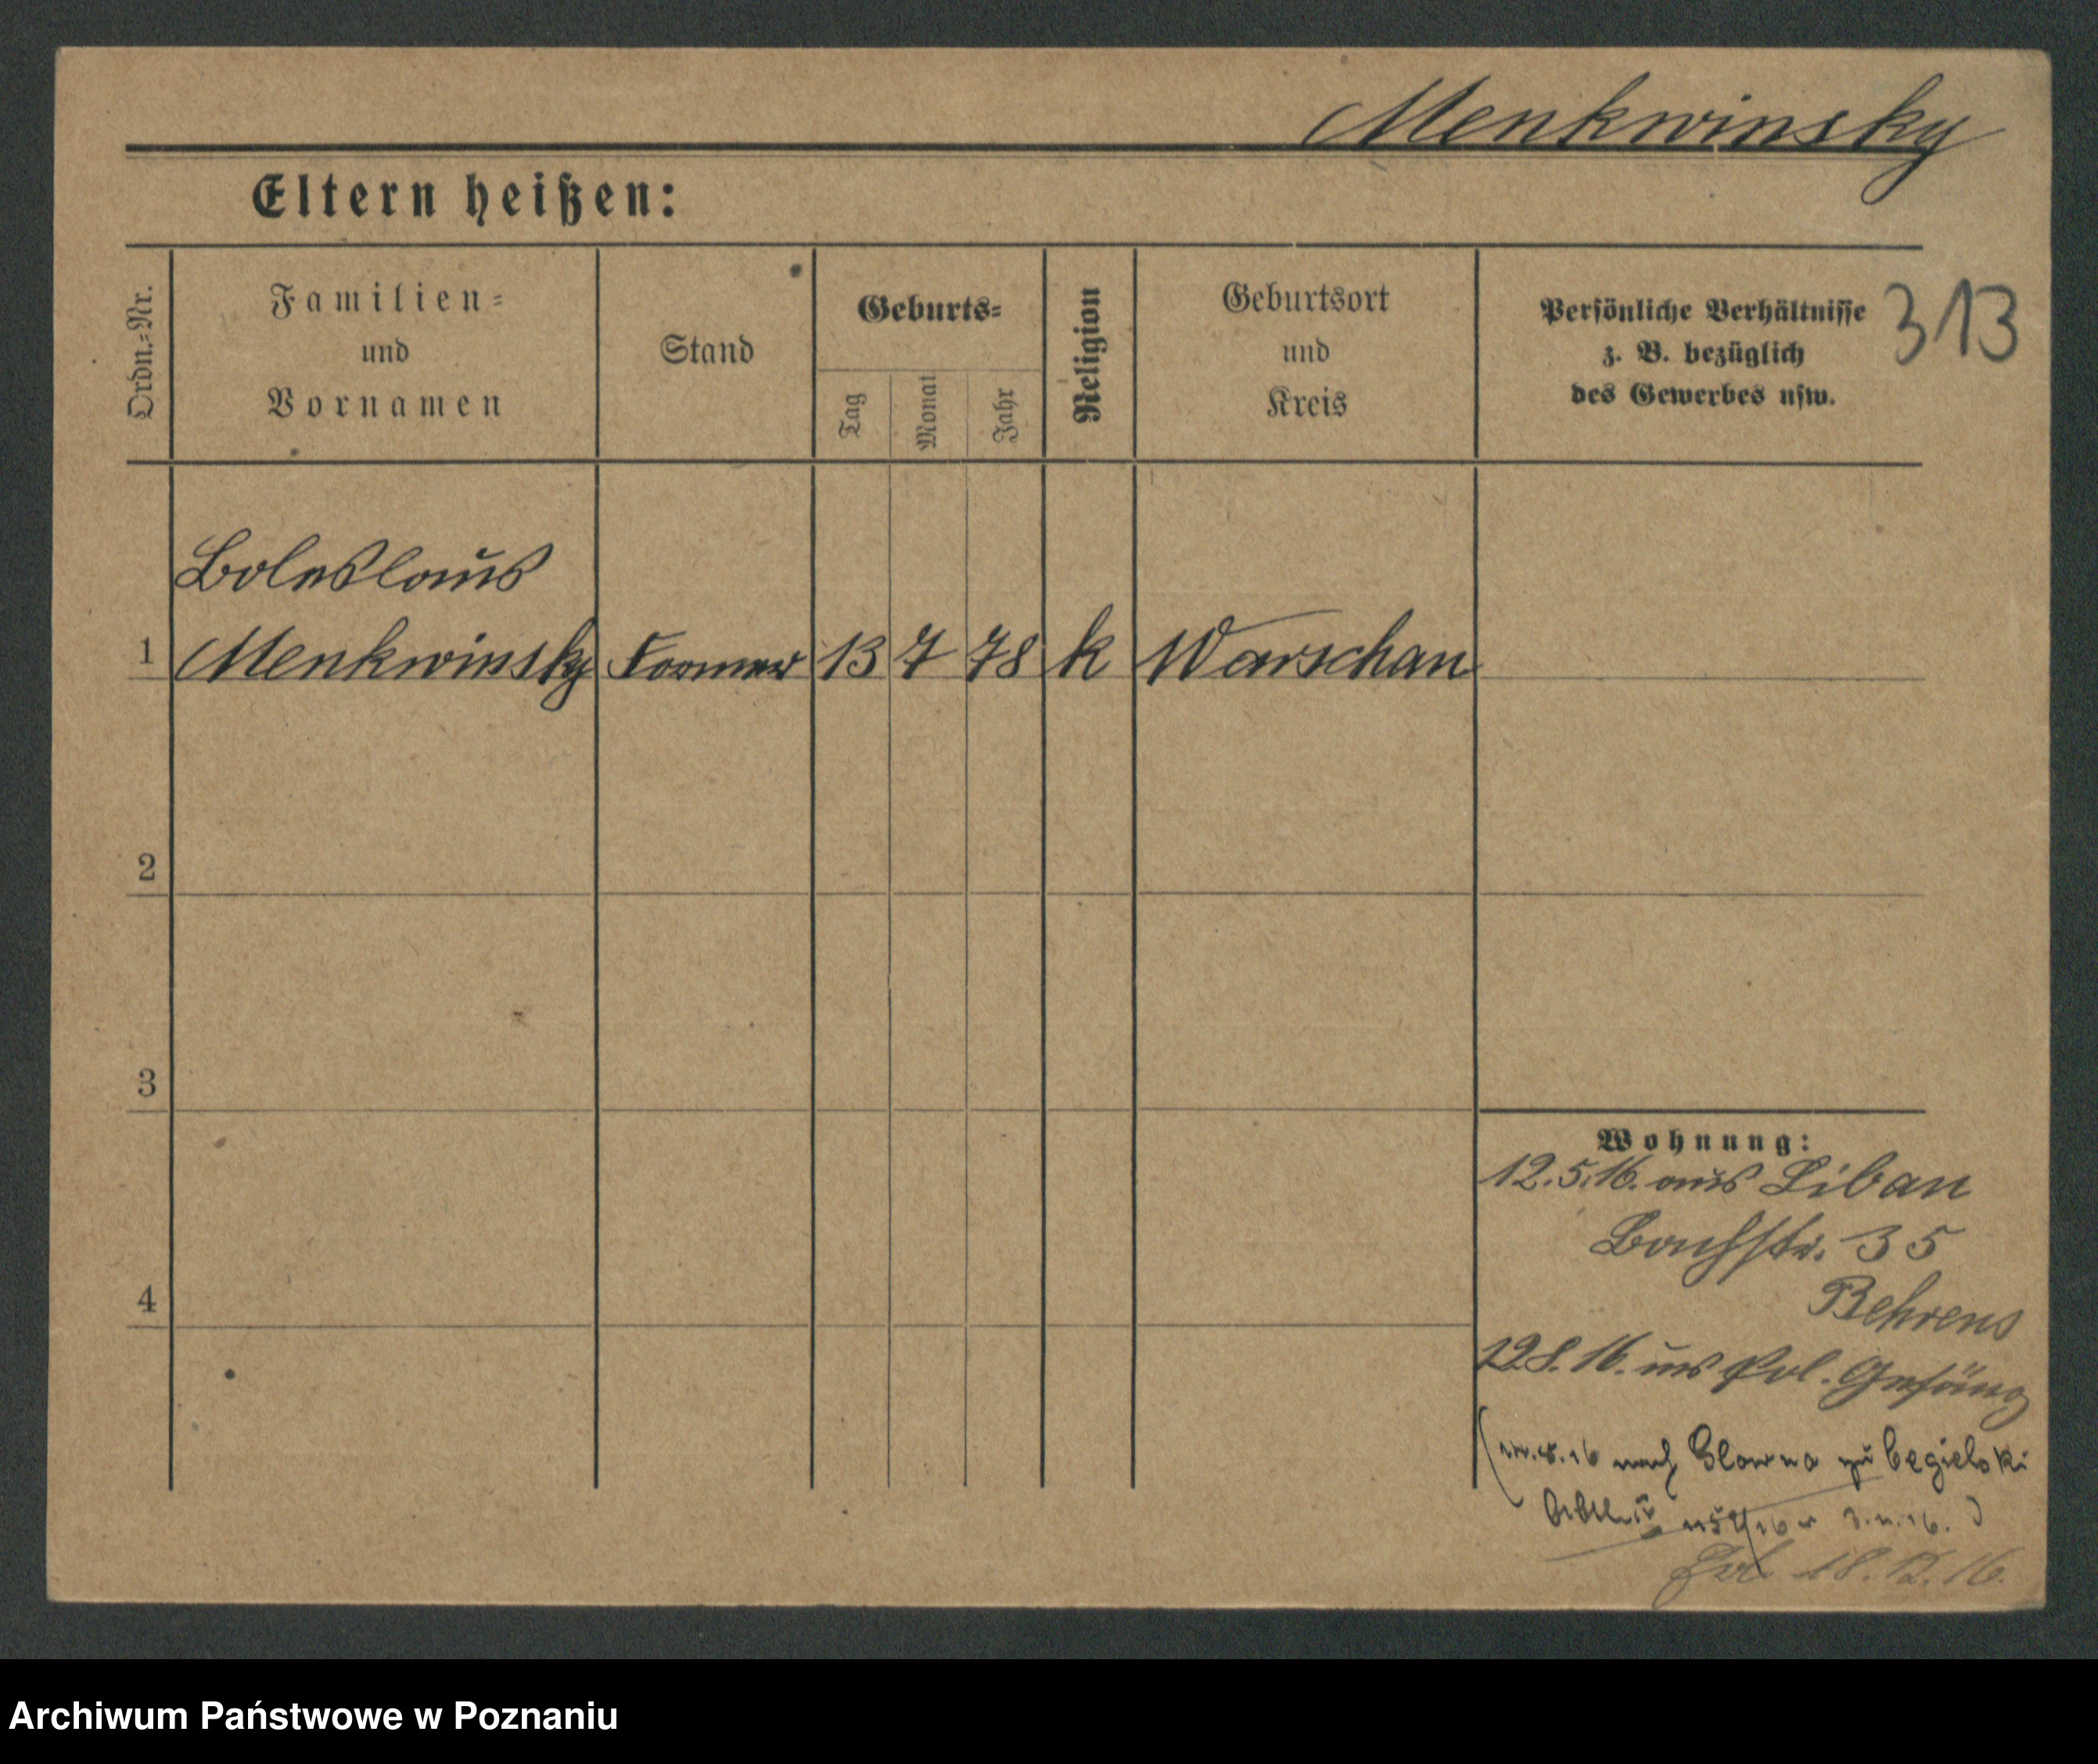 Menkwinsky
Eltern heißen:
313
Ordn.=Nr.
Familien=
und
Vornamen
Stand
Geburts=
Tag
Monat
Jahr
Religion
Geburtsort
und
Kreis
Persönliche Verhältnisse
z. B. bezüglich
des Gewerbes usw.
Boleslaus
1 Menkwinsky Former 13 7 78 k Warschau
2
3
4
Wohnung:
12.5.16. aus Libau
Bachstr. 35
Behrens
12.8.16. ins Pol. Gefäng
nach Glowno zu Cegielski
18.12.16.
Archiwum Państwowe w Poznaniu